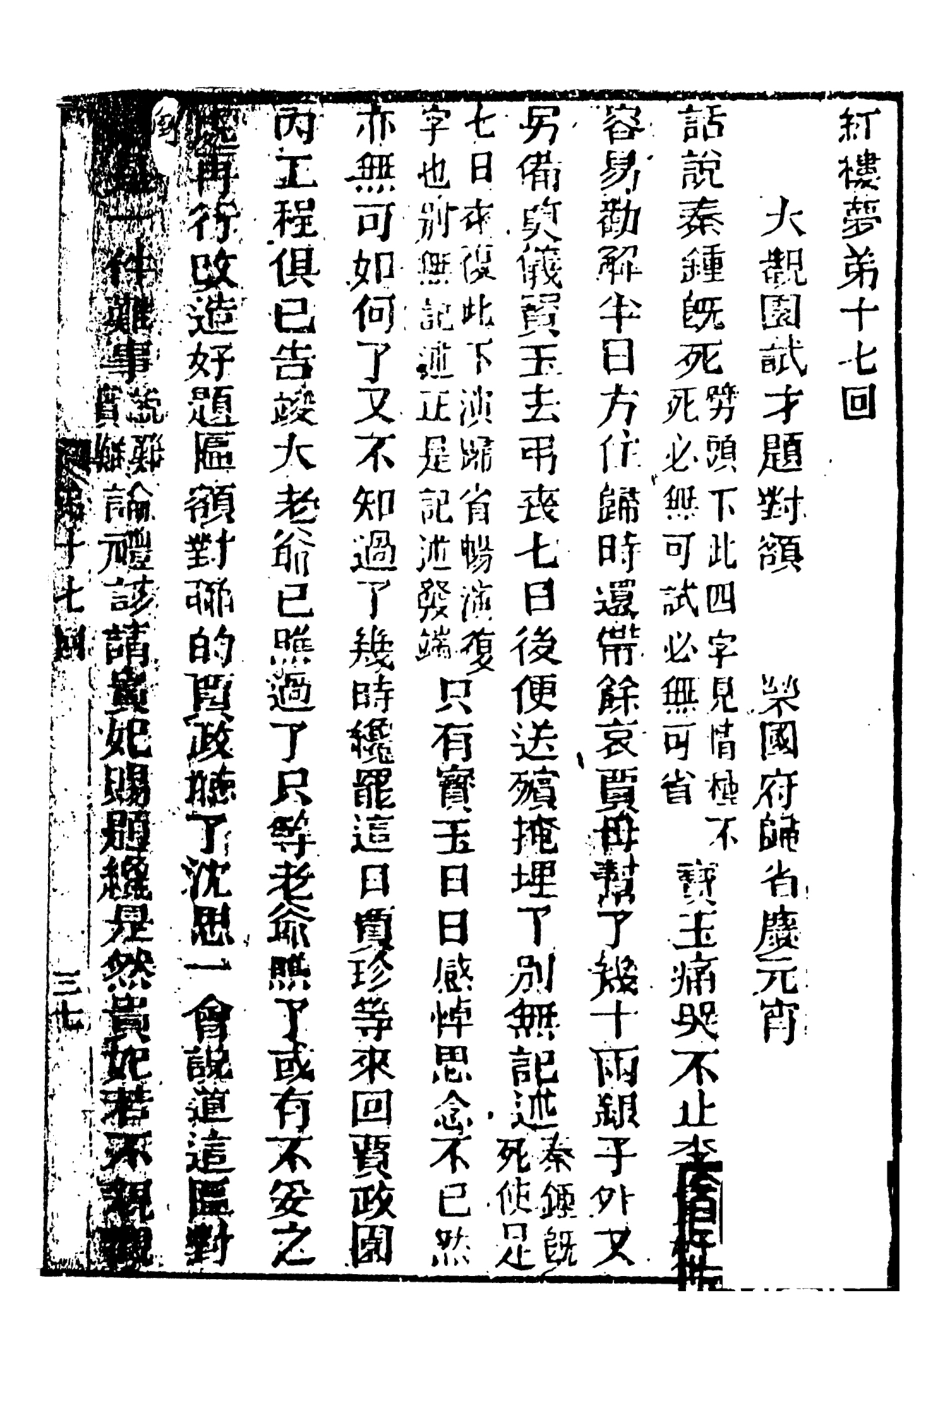 紅樓夢第十七回
大觀園試才題對額　榮國府歸省慶元宵
話說秦鍾既死劈頭下此四字見情極不死必無可試必無可省寶玉痛哭不止李
容易勸解半日方住歸時還帶餘哀賈母幫了幾十兩銀子外又
另備奠儀寶玉去弔喪七日後便送殯掩埋了別無記述秦鍾既死使足
七日衣復此下演歸省暢演復字也別無記述正是記述發端只有寶玉日日感悼思念不已然
亦無可如何了又不知過了幾時纔罷這日賈珍等來回賈政園
內工程俱已告竣大老爺已瞧過了只等老爺瞧了或有不妥之
處再行改造好題匾額對聯的賈政聽了沈思一會說道這匾對
是一件難事論禮該請貴妃賜題纔是然貴妃若不親觀
第十七回
三七